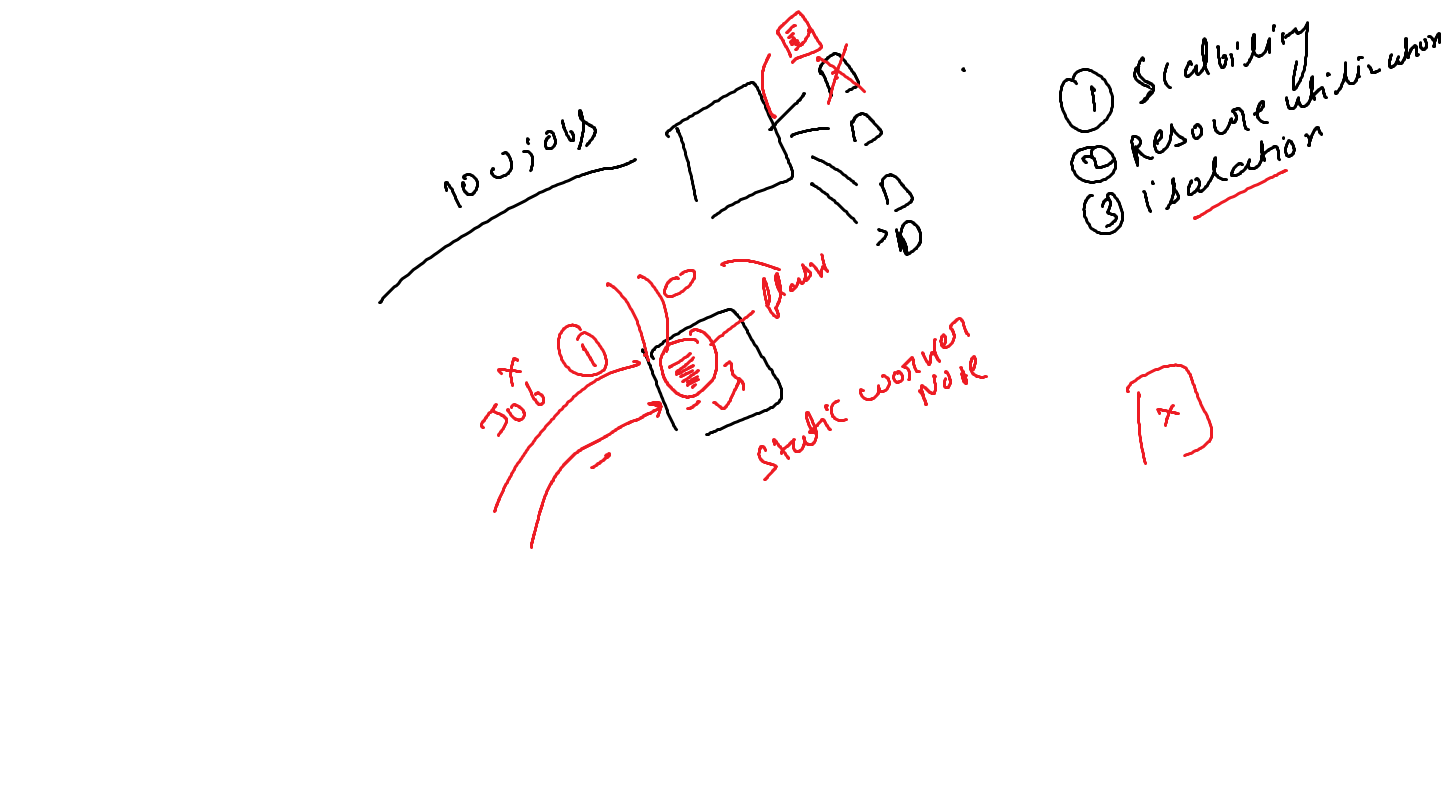 100 jobs
① Scalbility
② Resource utilization
③ isolation
Job ①
Static worker
Node